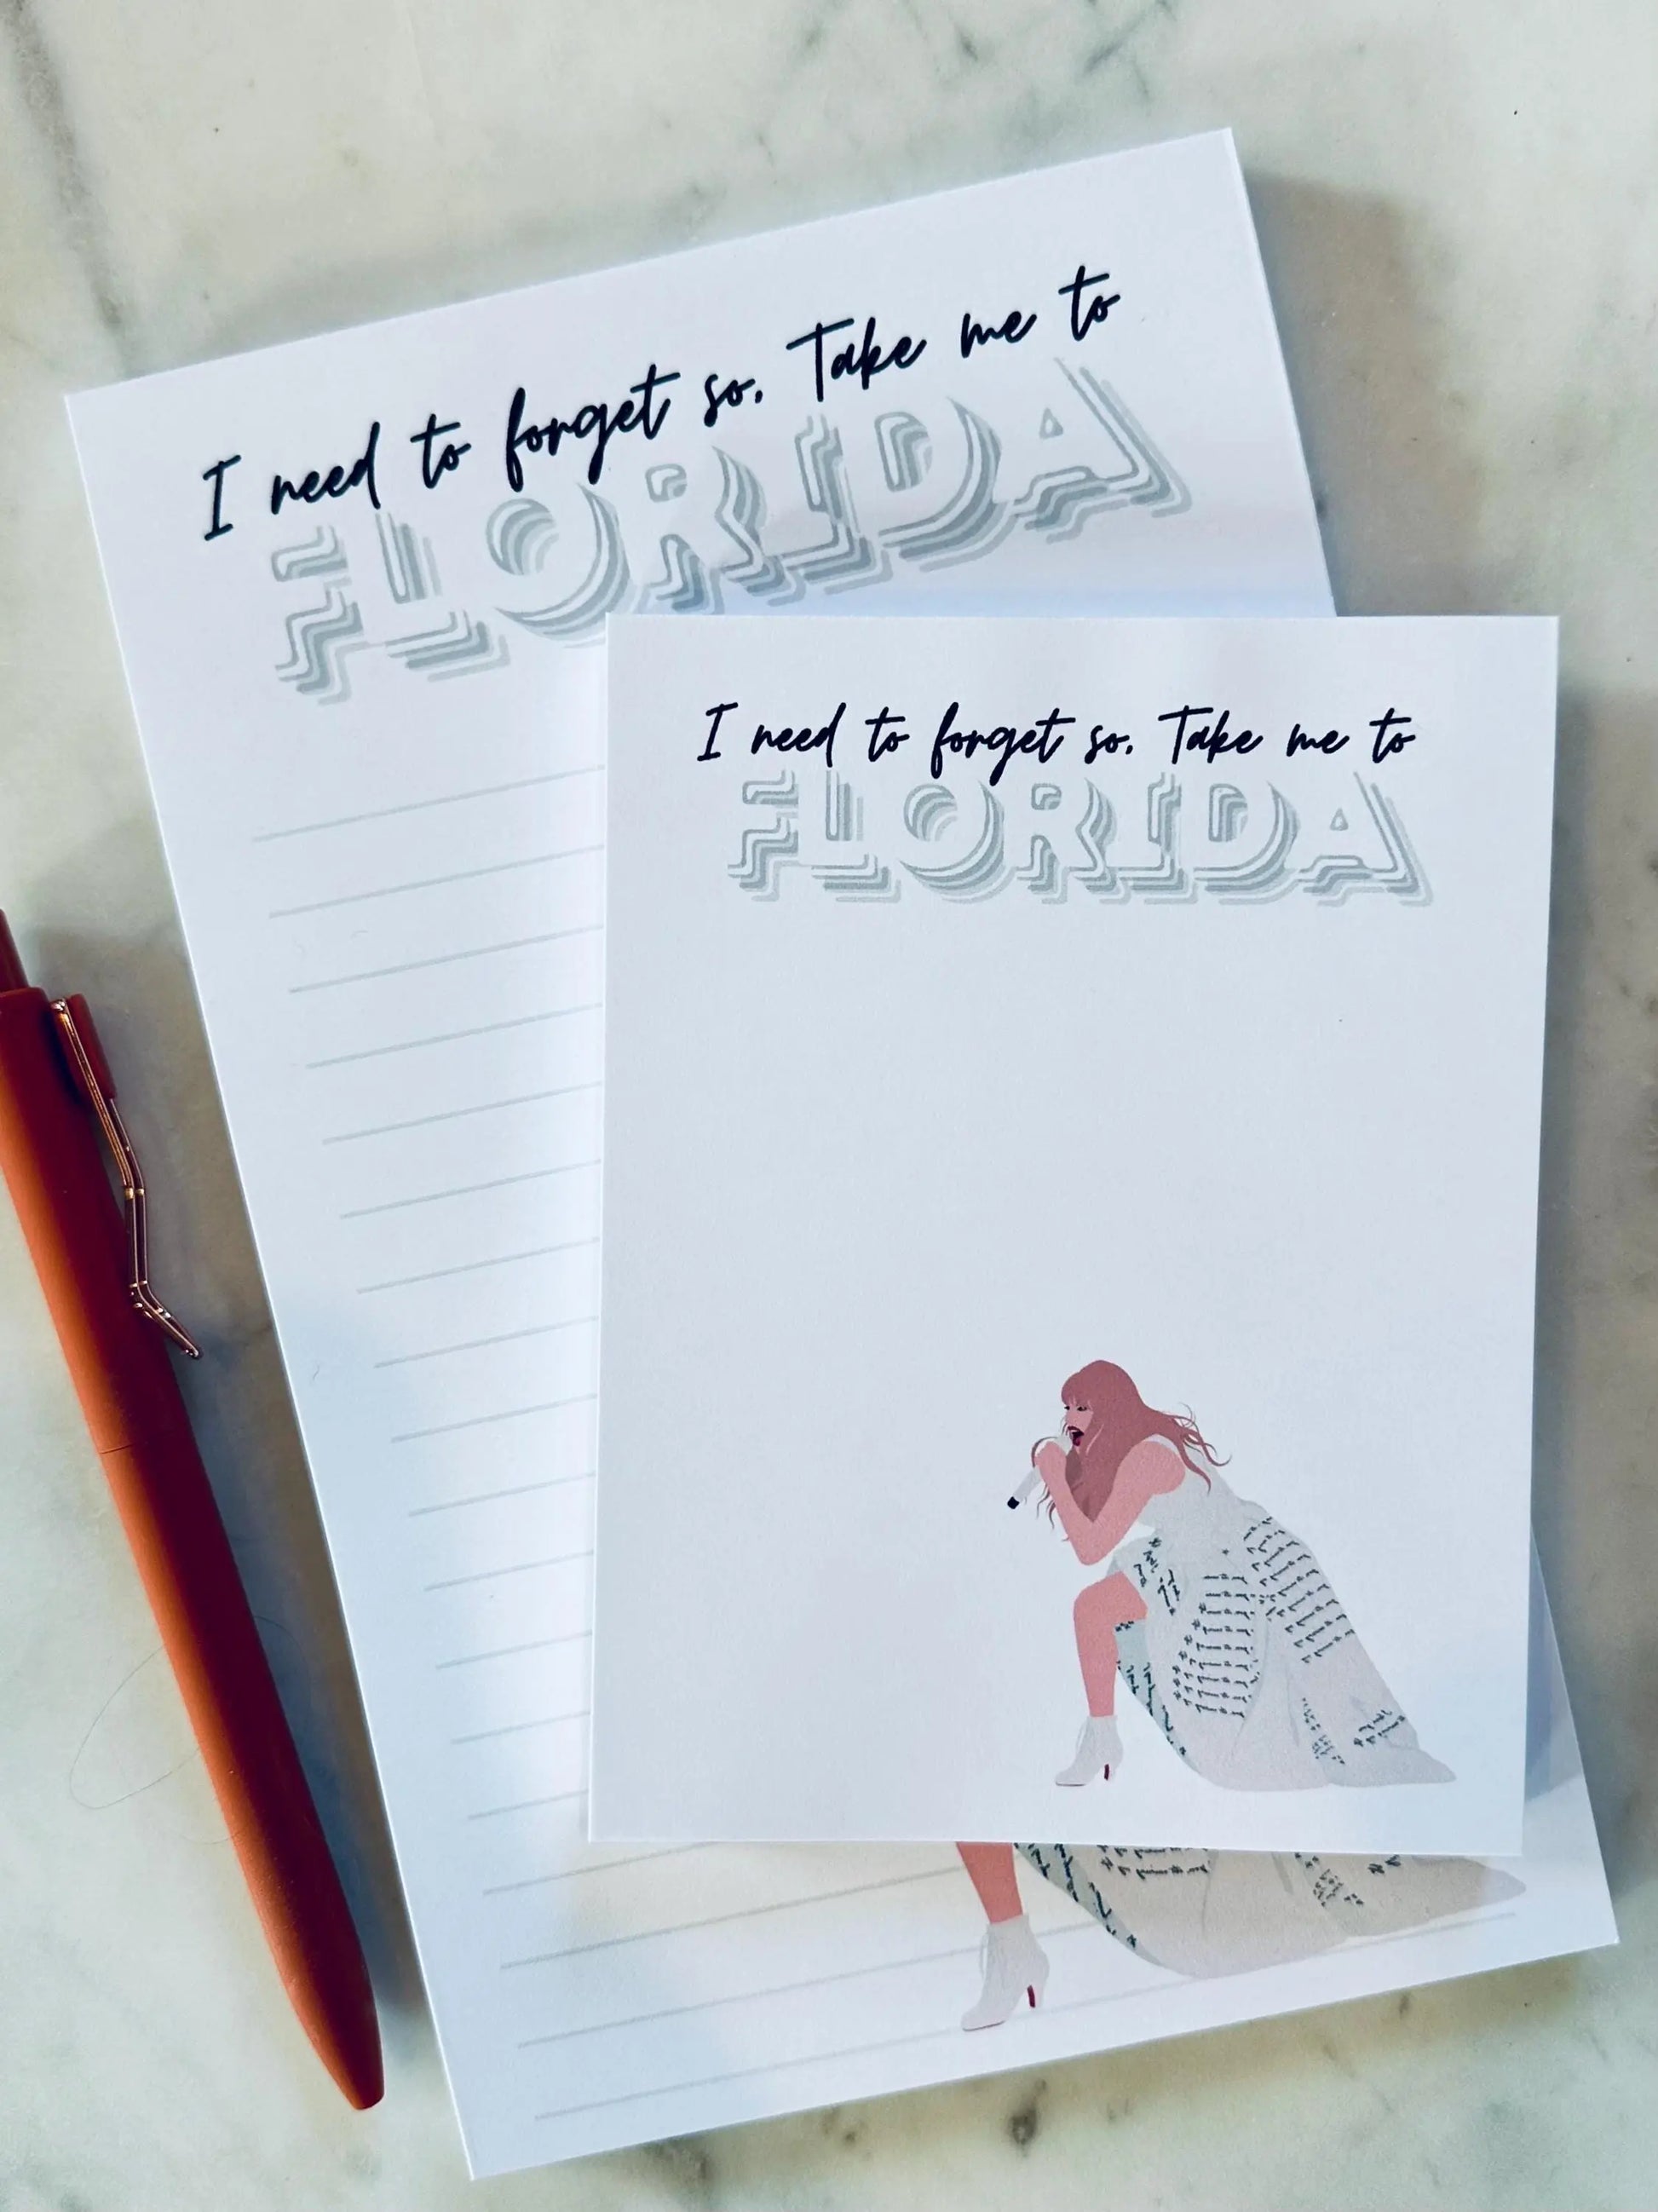 I need to forget so. Take me to
FLORIDA
I need to forget so. Take me to
FLORIDA